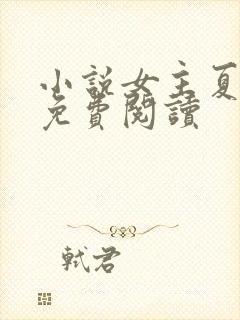 小說女主夏
免費閱讀
軾君